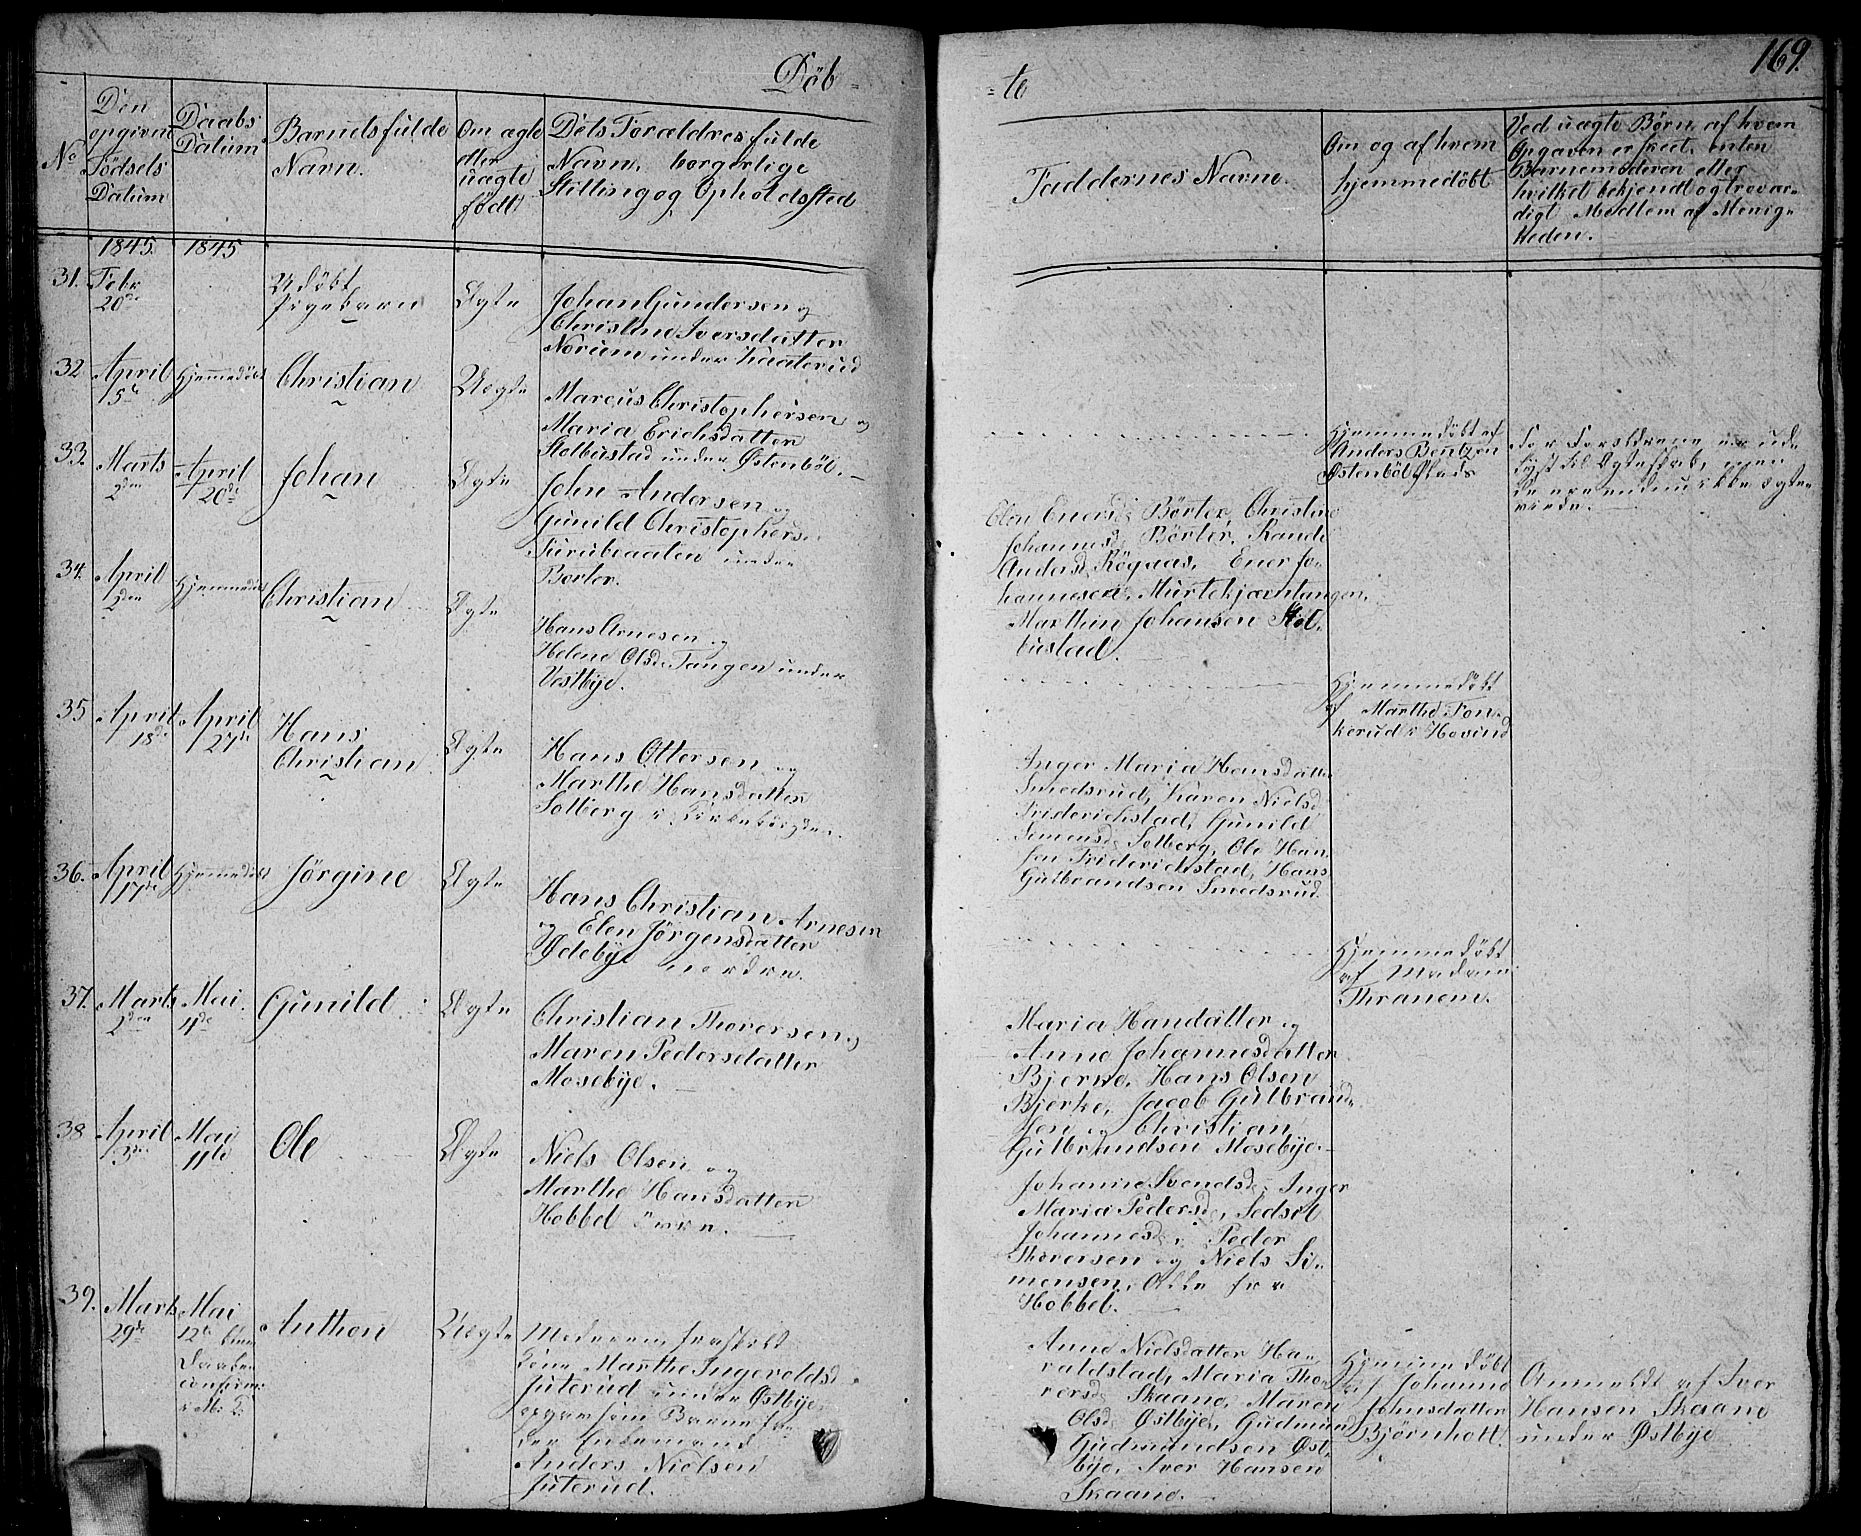 Döb-
-te
169.
No
Den
opgivne
Födsels
Datum
Daabs
Datum
Barnets fulde
Navn.
Om ægte
eller
uægte
födt
Dets Forældres fulde
Navn, borgerlige
Stilling og Opholdssted
Faddernes Navne.
Om og af hvem
hjemmedöbt
Ved uægte Börn af hvem
Opgaven er skeet, enten
Barnemoderen eller
hvilket bekjendt og trovær-
digt Medlem af Menig-
heden.
1845. 1845
31. Febr
20de
Udöbt
Pigebarn
Ægte
Johan Gundersen og
Christine Iversdatter
Norum under Haaterud
32 April
5te
Hjemmedöbt
Christian
Uægte
Marcus Christophersen og
Maria Erichsdatter
Stolbustad under Østenböl.
Hjemmedöbt af
Anders Bentzen
Østenböl Plads
For Forældrene er ude
lyst til Ægteskab, men
de ere endnu ikke ægte
viede.
33. Marts
2den
April
20de
Johan
Ægte
John Andersen og
Gunild Christophers.
Furubraaten under
Börter.
Elen Enersd. Börter, Christine
Johannesd. Börter, Rande
Andersd. Rögaas, Ener Jo-
hannesen, Murtekjærntangen,
Marthin Johansen Stol-
bustad.
34. April
2den
Hjemmedöbt
Christian
Ægte
Hans Arnesen og
Helene Olsd. Tangen under
Vestbye.
Hjemmedöbt
af Marthe Ton-
kerud i Hovind
35 April
18de
April
27de
Hans
Christian
Ægte
Hans Ottersen og
Marthe Hansdatter
Solberg i
Inger Maria Hansdatter
Smedsrud, Karen Nielsd.
Friderichstad, Gunild
Simensd. Solberg, Ole Han-
sen Friderichstad, Hans
Gulbrandsen Smedsrud.
36. April
17de
Hjemmedöbt
Jörgine
Ægte
Hans Christian Arnesen
og Elen Jörgensdatter
Ødebye nordre.
Hjemmedöbt
af Madam
Thranem.
37. Marts
2den
Mai
11te
Gunild
Ægte
Christian Thorersen og
Maren Pedersdatter
Mosebye.
Maria Handatter og
Anne Johannesdatter
Bjerke, Hans Olsen
Bjerke, Jacob Gulbrand-
sen og Christian
Gulbrandsen Mosebye.
38 April
3die
Mai
11te
Ole
Ægte
Niels Olsen og
Marthe Hansdatter
Hobbel övre.
Johanne Svendsd., Inger
Maria Pedersd., Sedsel
Johannesd., Peder
Thorersen og Niels Si-
mensen, Alle fra
Hobbel.
39. Marts
29de
Mai
12te blev
Daaben
confirm:
i M: K:
Anthon
Uægte
Moderen
Marthe Ingevoldsd.
Juterud under Østbye,
opgav som Barnefa-
der Enkemand
Anders Nielsen
Juterud.
Anne Nielsdatter Ha-
raldstad, Maria Tho-
rersd. Skaane, Maren
Olsd. Østbye, Gudmund
Gudmundsen Øst-
bye, Iver Hansen
Skaane.
Hjemmedöbt
af Johanne
Johnsdatter
Björnholt.
Anmeldt af Iver
Hansen Skaane
under Østbye